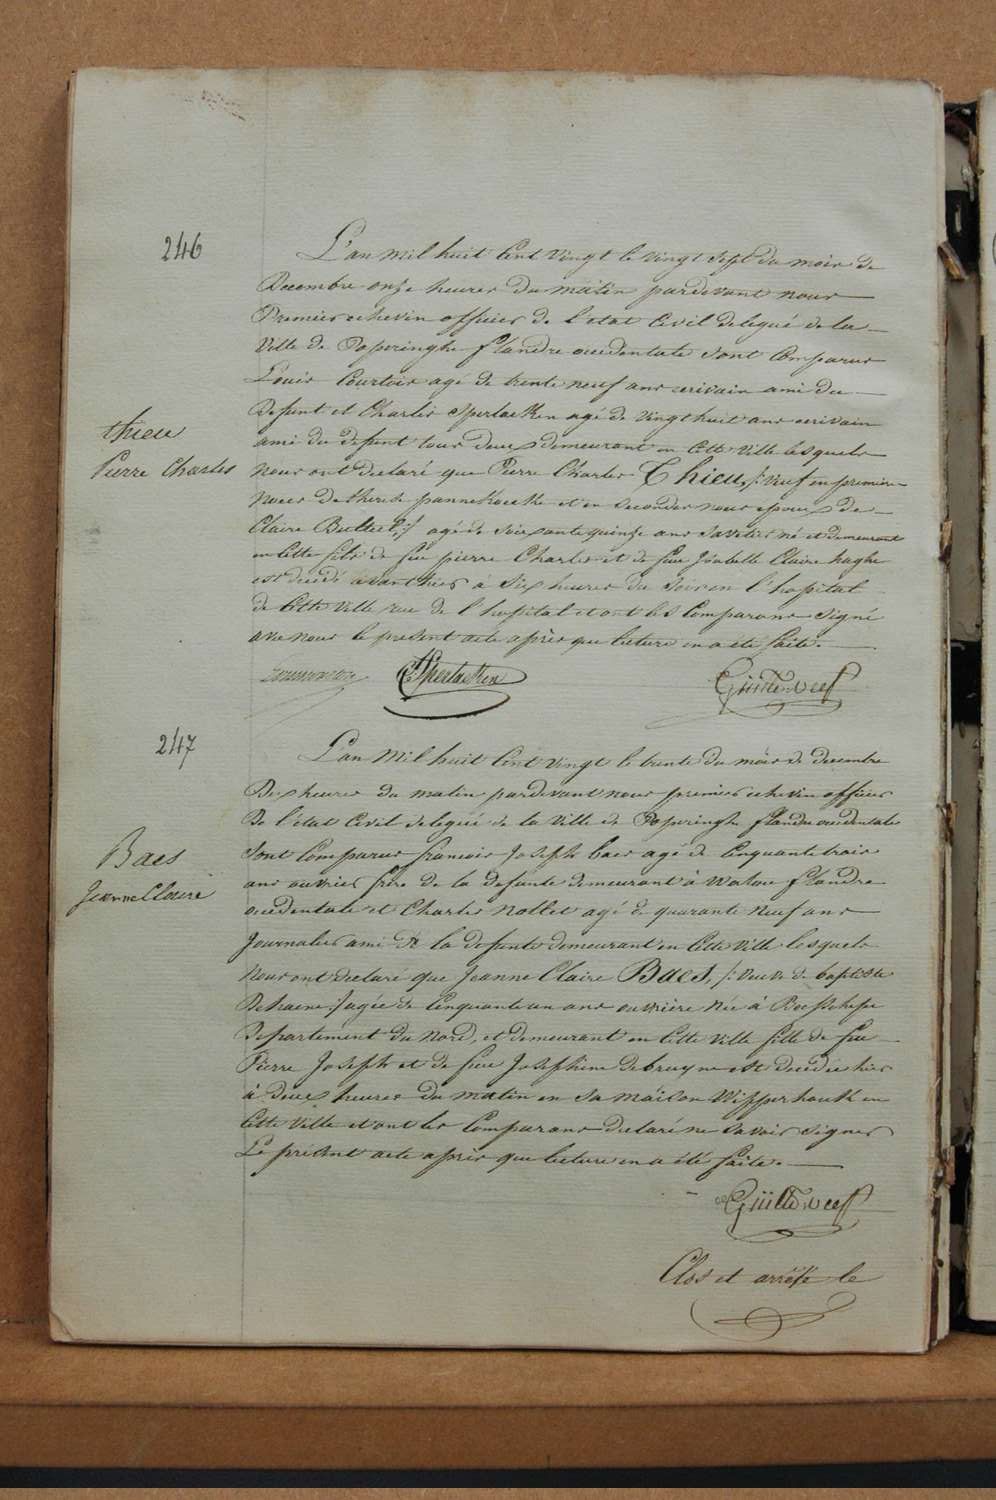 246
L'an mil huit cent vingt le vingt sept du mois de
Decembre onze heures du matin pardevant nous
Premier echevin officier de l'etat Civil delegué de la
Ville de Poperinghe flandre occidentale sont comparus
Louis Courtois agé de trente neuf ans ecrivain ami du
defunt et Charles Sperlaeken agé de vingt huit ans ecrivain
thieu
ami du defunt tous deux demeurant en Cette Ville lesquels
Pierre Charles
nous ont declaré que Pierre Charles Thieu, /: veuf en premiere
noces de therese pannekoeke et en secondes noces epoux de
Claire Bulteel :/ agé de soixante quinze ans savetier né et demeurant
en Cette fils de feu pierre Charles et de feue Isabelle Claire
est decedé avant hier à Six heures du soir en l'hopital
de Cette Ville rue de l'hopital et ont les Comparans signé
avec nous le present acte après que lecture en a été faite.
C Sperlaeken
247
L'an Mil huit Cent vingt le trente du mois de decembre
Dix heures du matin pardevant nous premier echevin officier
De l'état Civil delegué de la Ville de Poperinghe flandre occidentale
sont Comparus francois Joseph baes agé de Cinquante trois
Baes
ans ouvrier frère de la defunte demeurant à Watou flandre
Jeanne Claire
occidentale et Charles Nollet agé de quarante neuf ans
Journalier ami de la defunte demeurant en Cette Ville lesquels
nous ont declaré que Jeanne Claire Baes, /: veuve de baptiste
Dehaene :/ agée de Cinquante un ans ouvrière née à Boeschepe
Departement du Nord, et demeurant en Cette Ville fille de feu
Pierre Joseph et de feue Josephine debruyne est decedée hier
à deux heures du matin en sa maison Wipperhoutk en
Cette Ville et ont les Comparans declaré ne savoir signer
Le présent acte après que lecture en a été faite.
Clos et arrêté le